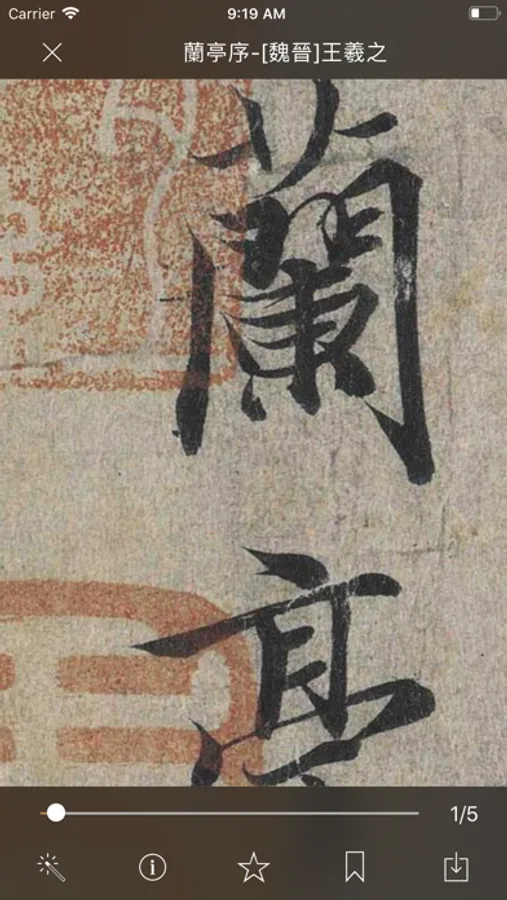 Carrier 9:19 AM
蘭亭序-[魏晉]王羲之
蘭
亭
1/5